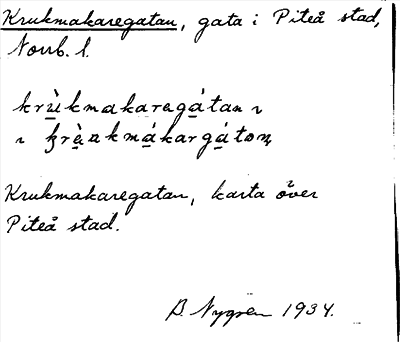 Krukmakaregatan, gata i Piteå stad,
Norrb. l.
krù̱kmakaregá̱tan ı
ı krè̱akmá̱kargá̱ton
Krukmakaregatan, karta över
Piteå stad.
B. Nygren 1934.